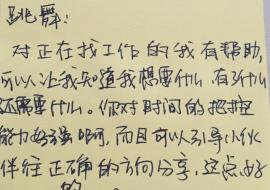 跳舞:
对正在找工作的我有帮助,
可以让我知道我想要什么,有什么
还需要什么。你对时间的把控
能力好强啊,而且可以引导小伙
伴往正确的方向分享,这点好
的。